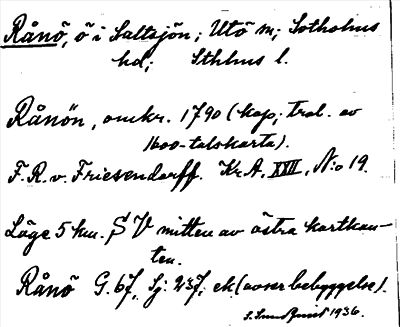 Rånö, ö i Saltsjön; Utö sn; Sotholms
hd; Sthlms l.
Rånön, omkr. 1790 (kop; trol. av
1600-talskarta).
F. R. v. Friesendorff. Kr.A. XVII, N:o 19.
Läge 5 km. SV mitten av östra kartkan-
ten.
Rånö G. 67, Sj: 237, ek. (avser bebyggelse).
1936.